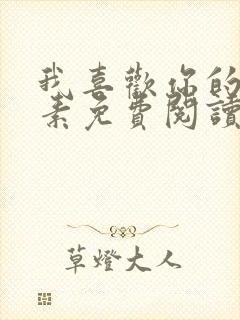 我喜歡你的
素免費閱讀
草燈大人